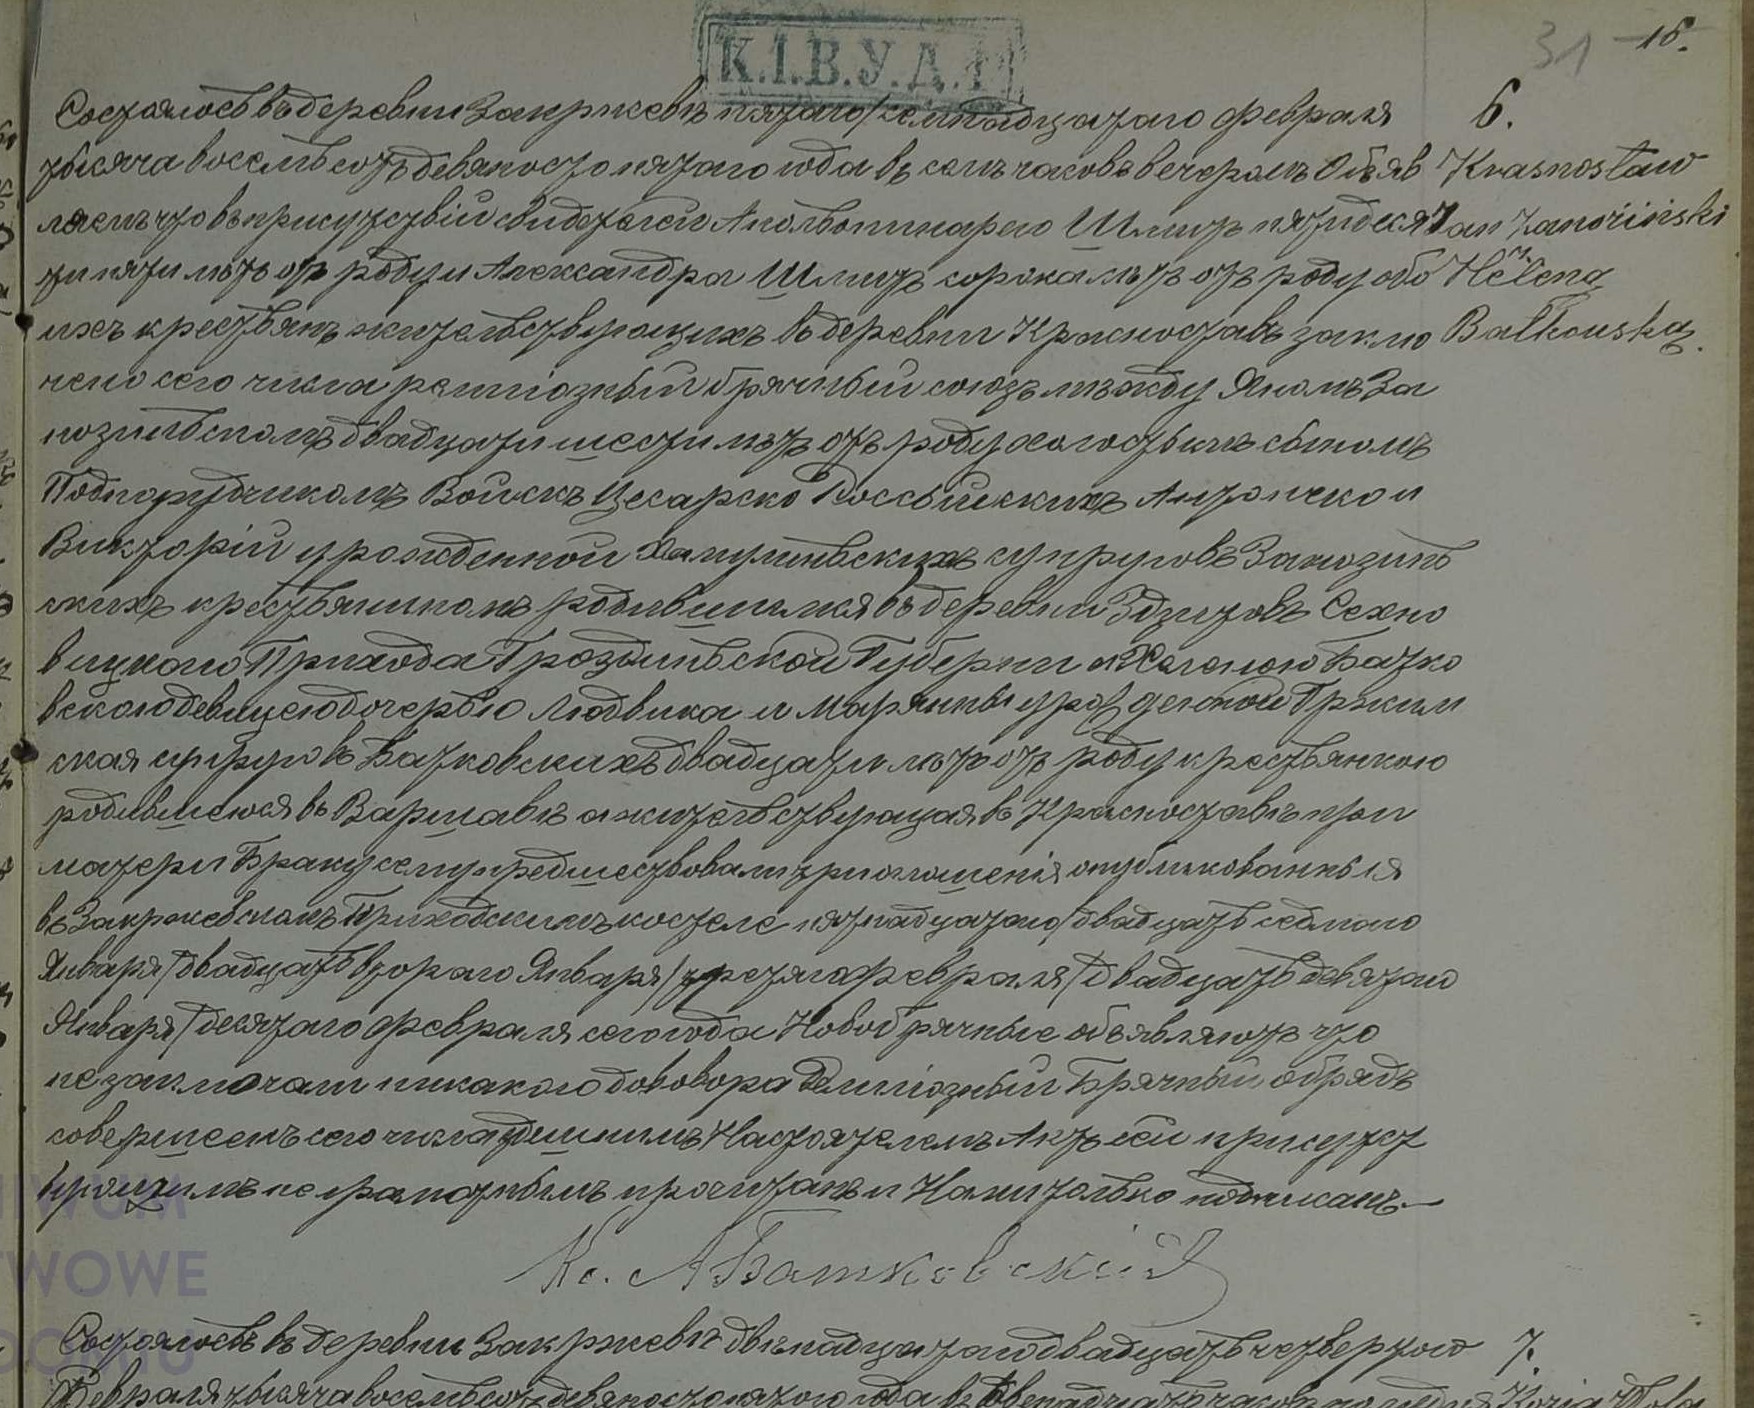 К.І.В.У.Д.І
31 16.
Состоялось въ деревни Закржевѣ пятаго/семнадцатаго февраля
6.
тысяча восемьсотъ девяносто пятаго года въ семь часовъ вечеромъ Объяв
Krasnostaw
ляемъ что въ присутствіи свидетелей Шмитъ пятидеся
Jan Zanoziński
ти пяти лѣтъ отъ роду и Александра Шмитъ сорока лѣтъ отъ роду обо
i Helena
ихъ крестьянъ жительствующихъ въ деревни Красноставъ заклю
Batkouska
чено сего числа религіозный брачный союзъ между Яномъ За
нозинскомъ двадцати шести лѣтъ отъ роду холостымъ сыномъ
Подпоручикомъ Войскъ Цесарско Россійскихъ Антонеком
Викторіи урожденной супруговъ Занозинь
скихъ крестьяниномъ родившимся въ деревни Здзитовъ Сехно
вицкого Прихода Гродзинской Губерни и Хеленою Батко
вскою девицею дочерью Людвика и Марянны урожденой Гржим
ская супругов Батковскихъ двадцати лѣтъ отъ роду крестьянкою
родившеюся въ Варшавѣ а жительствующая въ Красноставѣ при
матери Браку сему предшествовали три оглошенія опубликованныя
въ Закржевскомъ Приходскимъ костеле пятнадцатаго/двадцать седмого
Января/двадцать второго Января/третяго февраля/двадцать девятаго
Января/десятаго февраля сего года Новобрачные объявляютъ что
не заключали никакого доковора Религіозный Брачный обрядъ
совершенъ сего числа Настоятелемъ Актъ сей присутст
вующимъ неграмотнымъ прочитанъ и Нами только подписанъ.—
Кс. А Батковскій
Состоялось въ деревни Закржевѣ двѣнадцатаго двадцать четвертого
7.
Февраля тысяча восемьсотъ девяносто пятого года въ двенадцать часовъ по